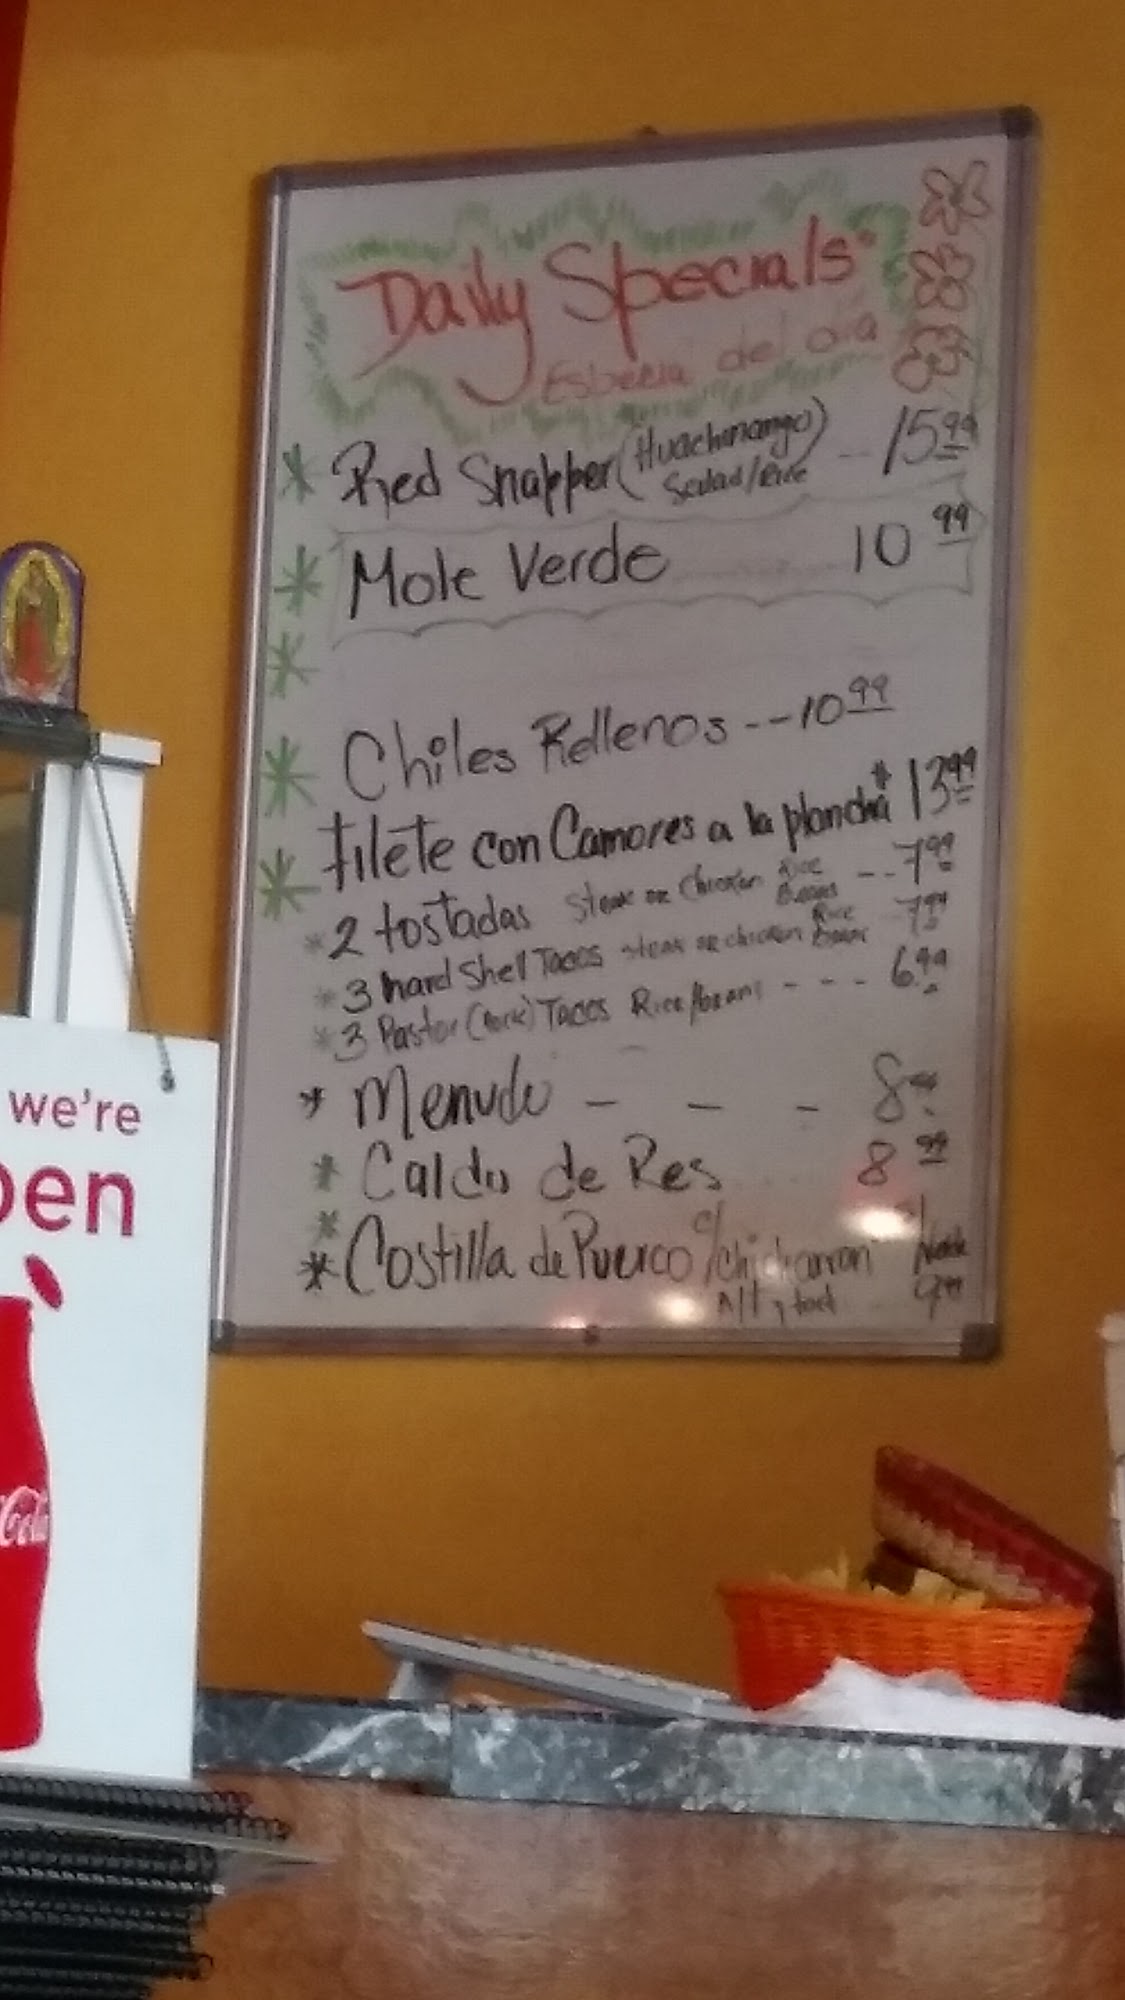 Daily Specials
Especia del dia
* Red Snapper (Huachinango) -- 15.99
Salad/Rice
* Mole Verde 10 99
*
* Chiles Rellenos --- 10 99
* Filete con Camores a la plancha* 13.99
* 2 tostadas Steak or Chicken Rice Beans --- 7.99
* 3 hard Shell Tacos steak or chicken Rice Beans 7.99
* 3 Pastor (Pork) Tacos Rice/beans --- 6.99
* Menudo - - - 8.99
* Caldo de Res 8 99
* Costilla de Puerco c/chicharron c/
9.99
we're
pen
Cola